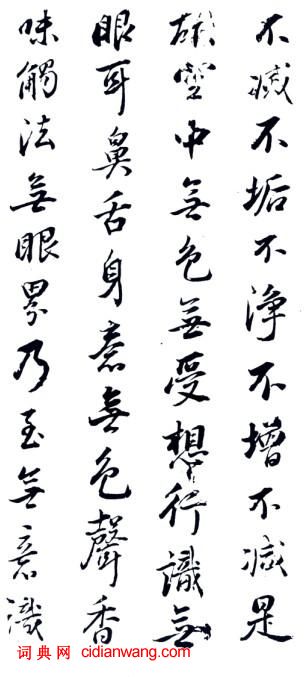 不滅不垢不淨不增不減是
故空中無色無受想行識無
眼耳鼻舌身意無色聲香
味觸法無眼界乃至無意識
词典网 cidianwang.com